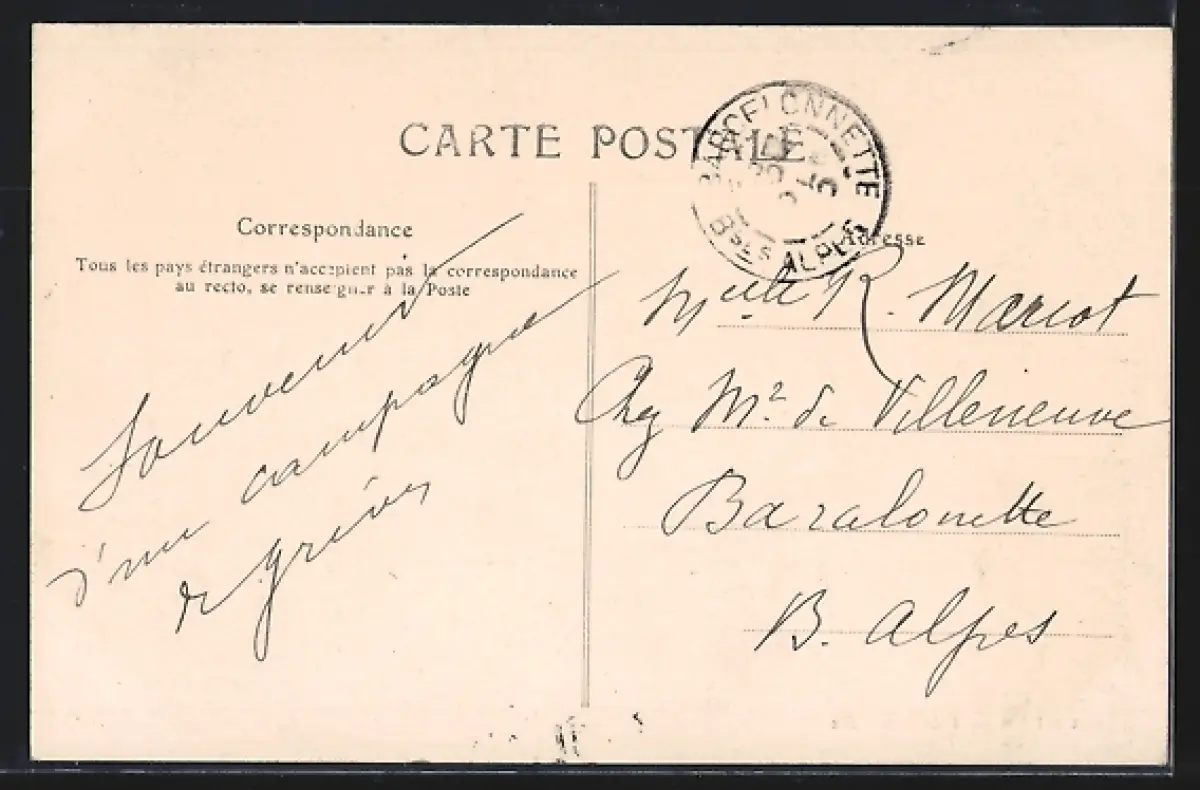 CARTE POSTALE
BARCELONNETTE
Bses ALPES
Correspondance
Tous les pays étrangers n'acceptent pas la correspondance
au recto, se renseigner à la Poste
Souvenir
d'une campagne
de grives
Adresse
Melle R. Marcot
Chez Mr. de Villeneuve
Barcelonnette
B. Alpes